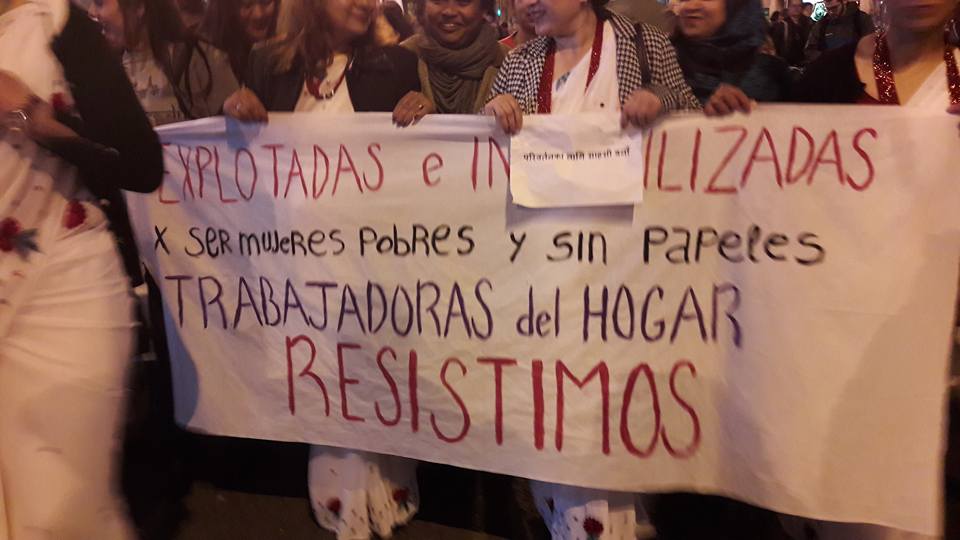 EXPLOTADAS e IN ILIZADAS
परिवर्तनका लागि साहसी बनौं
X SER mujeRES PObRES y SIN PAPeles
TRABAJADORAS del HOGAR
RESISTIMOS